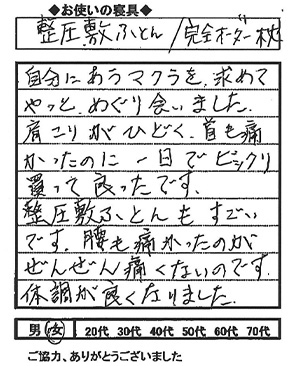 ◆お使いの寝具◆
整圧敷ふとん/完全オーダー枕
自分にあうマクラを、求めて
やっと、めぐり会いました。
肩こりがひどく、首も痛
かったのに一日でビックリ
買って良ったです。
整圧敷ふとんもすごい
です。腰も痛かったのが
ぜんぜん痛くないのです。
体調が良くなりました。
男 女 20代 30代 40代 50代 60代 70代
ご協力、ありがとうございました